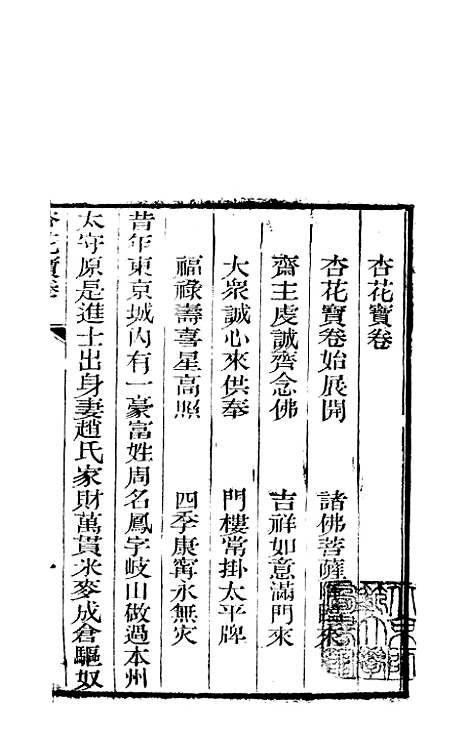 杏花寶卷
杏花寶卷始展開　諸佛菩薩降臨來
齋主虔誠齊念佛　吉祥如意滿門來
大衆誠心來供奉　門樓常掛太平牌
福祿壽喜星高照　四季康寗永無灾
昔年東京城內有一豪富姓周名鳳字岐山做過本州
太守原是進士出身妻趙氏家財萬貫米麥成倉驅奴
杏花寶卷
一